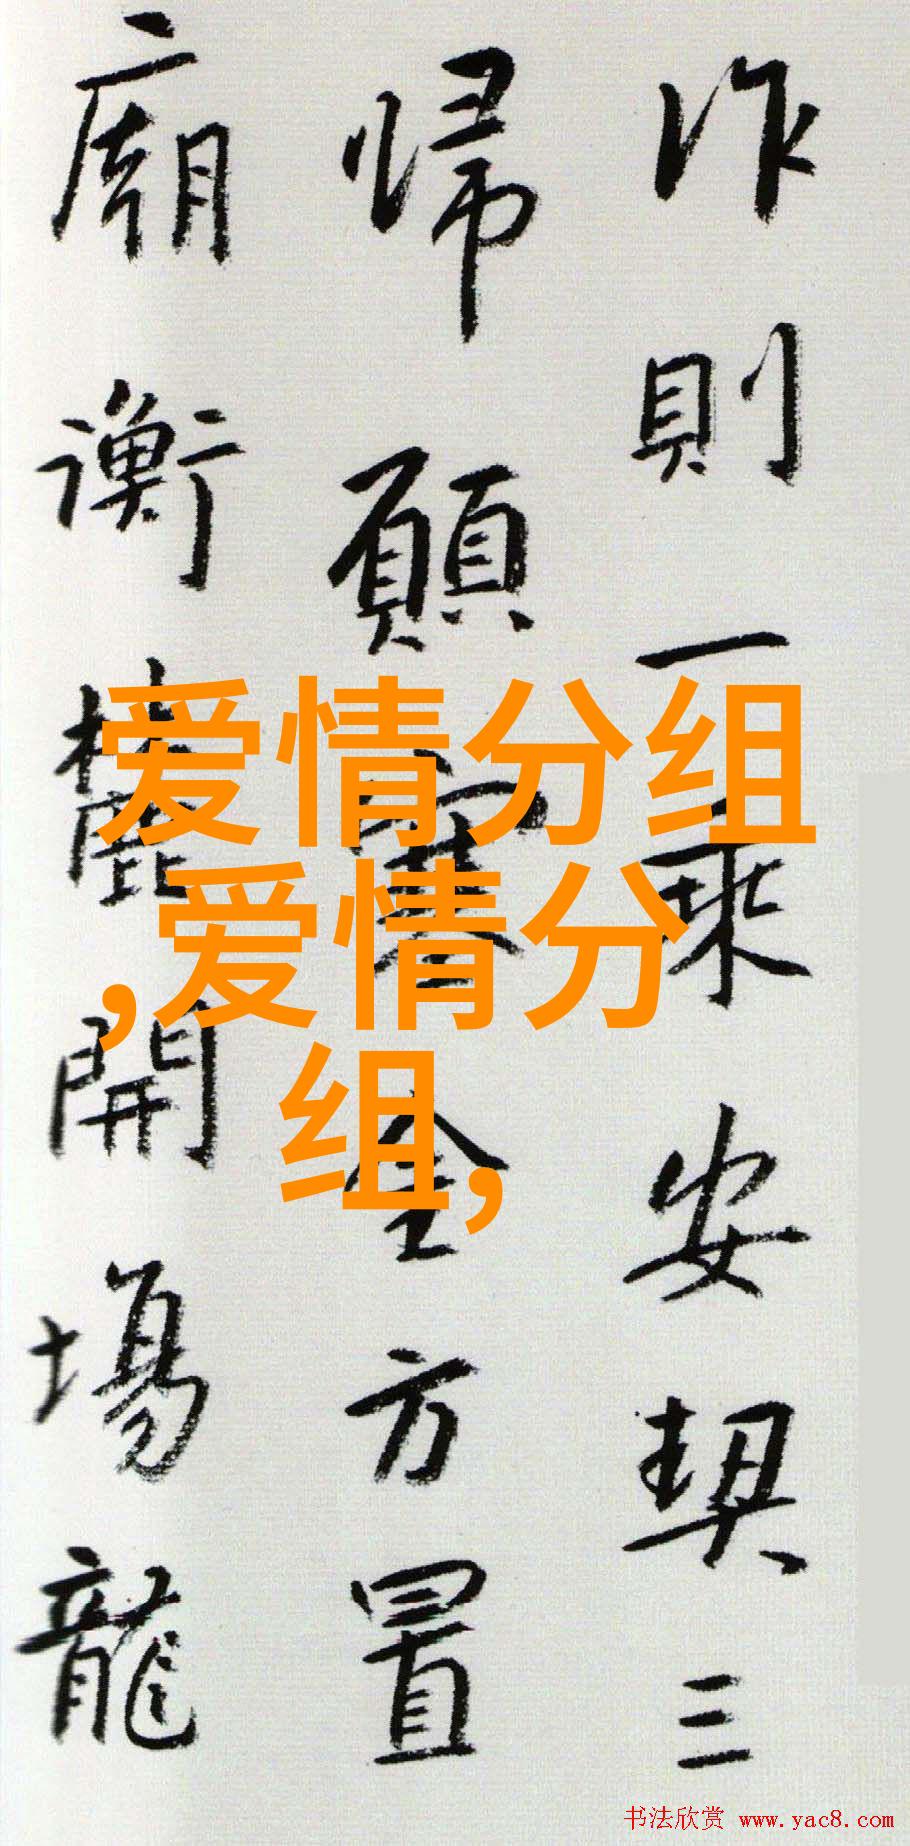 作則一乘安契三
歸願方置
廟衡麓開場龍
爱情分组
,爱情分
组,
书法欣赏 www.yac8.com